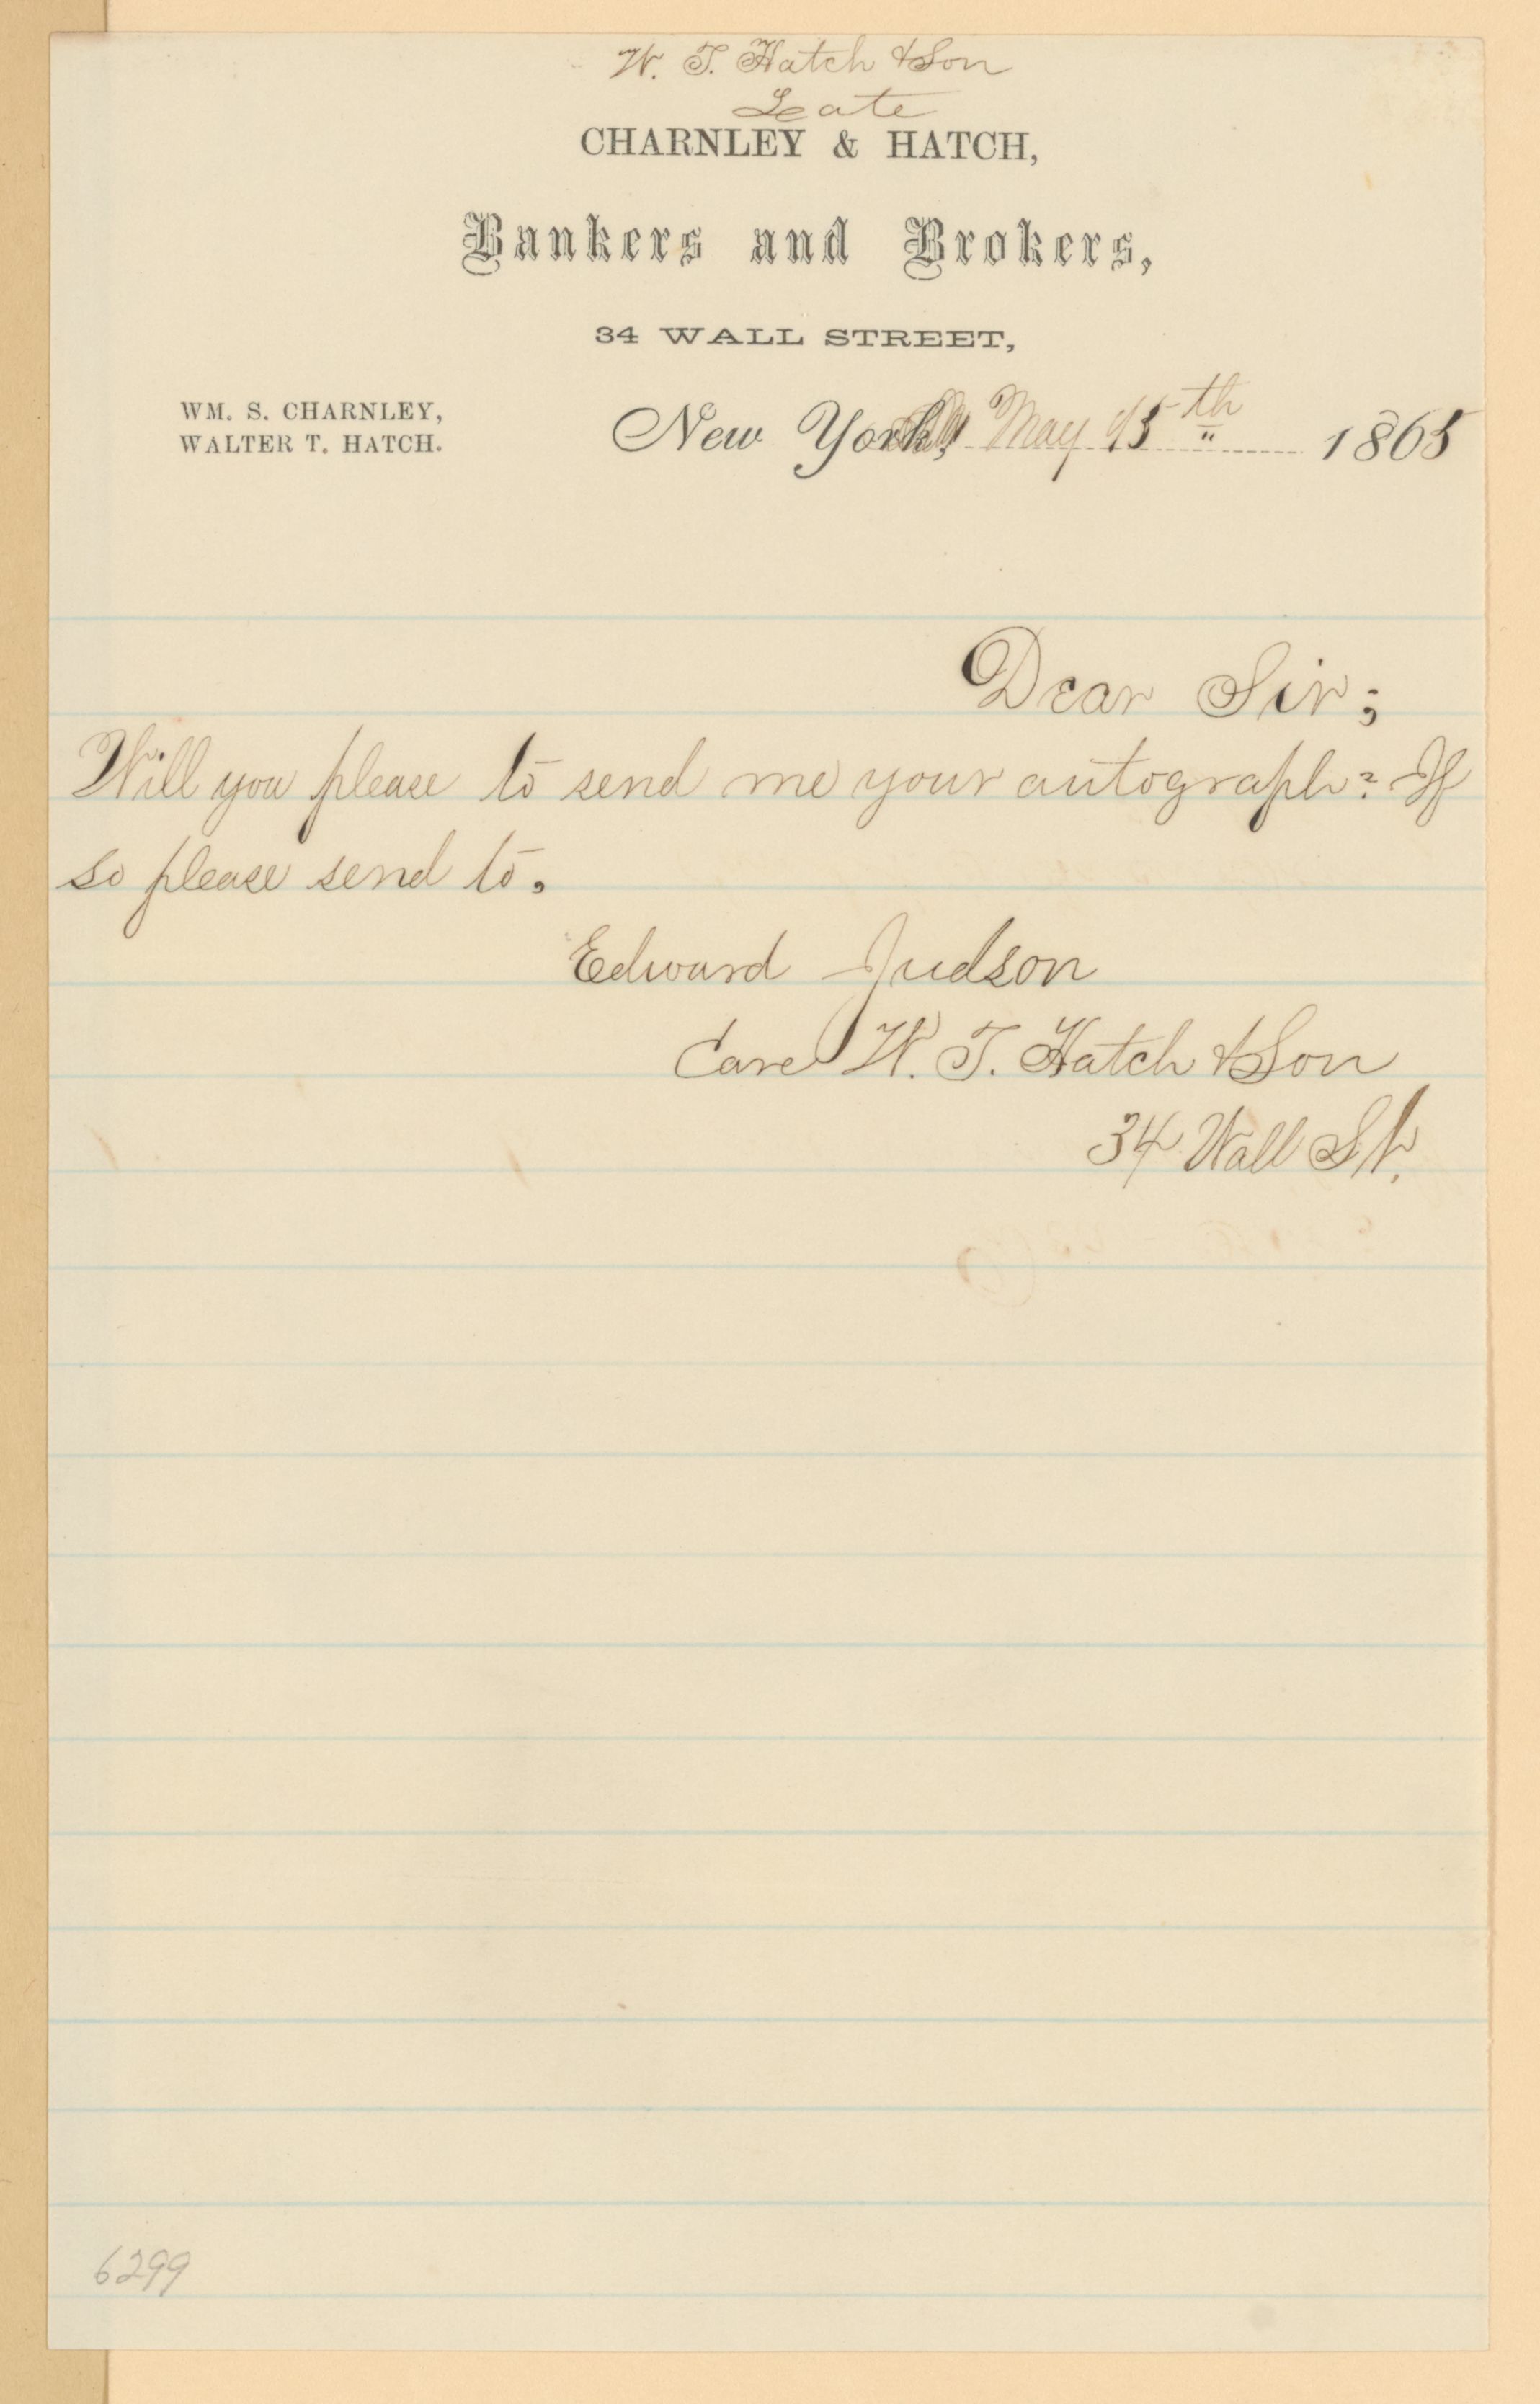 W. T. Hatch & Son
Late
CHARNLEY & HATCH,
Bankers and Brokers,
34 WALL STREET,
WM. S. CHARNLEY,
WALTER T. HATCH.
New York, May 15th 1865
Dear Sir;
Will you please to send me your autograph? If
so please send to.
Edward Judson
Care W. T. Hatch & Son
34 Wall St.
6299